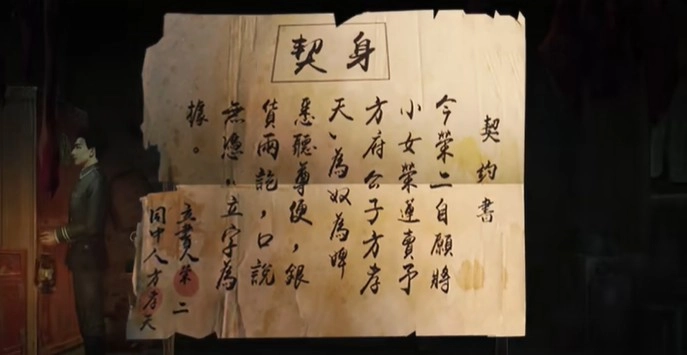 身契
契约書
今榮二自願將
小女榮蓮賣予
方府公子方孝
天、為奴為婢
悉聽尊便,銀
貨兩訖,口說
無憑,立字為
據。
立書人榮二
同中人方孝天